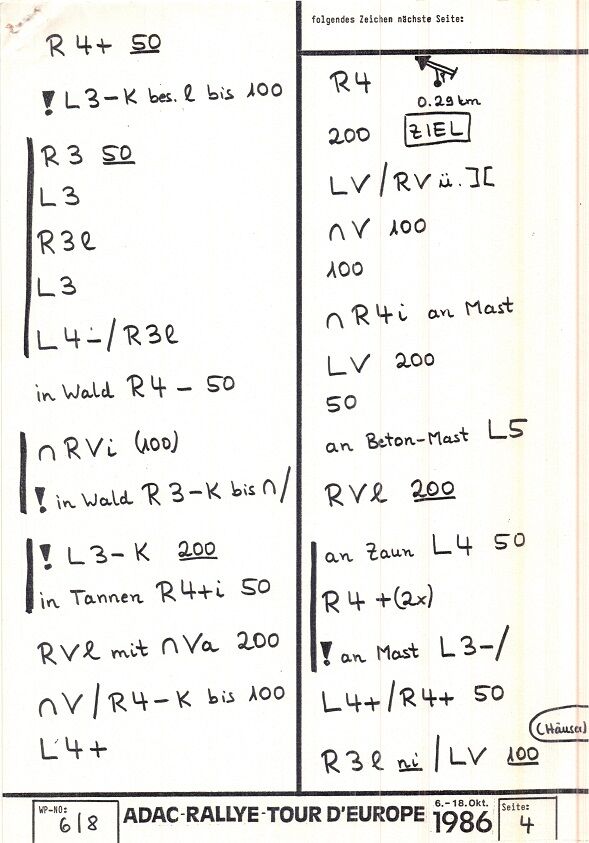 R 4+ 50
! L 3-K bes. l bis 100
R 3 50
L 3
R 3 l
L 3
L 4-/R 3 l
in Wald R 4 - 50
∩ R V i (100)
! in Wald R 3-K bis ∩/
! L 3-K 200
in Tannen R 4+i 50
R V l mit ∩ V a 200
∩ V/R 4-K bis 100
L 4+
folgendes Zeichen nächste Seite:
R 4
0.29 km
200 ZIEL
L V/R V ü. ][
∩ V 100
100
∩ R 4 i an Mast
L V 200
50
an Beton-Mast L 5
R V l 200
an Zaun L 4 50
R 4 +(2x)
! an Mast L 3-/
L 4+/R 4+ 50
(Häuser)
R 3 l ni / L V 100
WP-NO:
6/8
ADAC-RALLYE-TOUR D'EUROPE
6.-18.Okt.
1986
Seite:
4